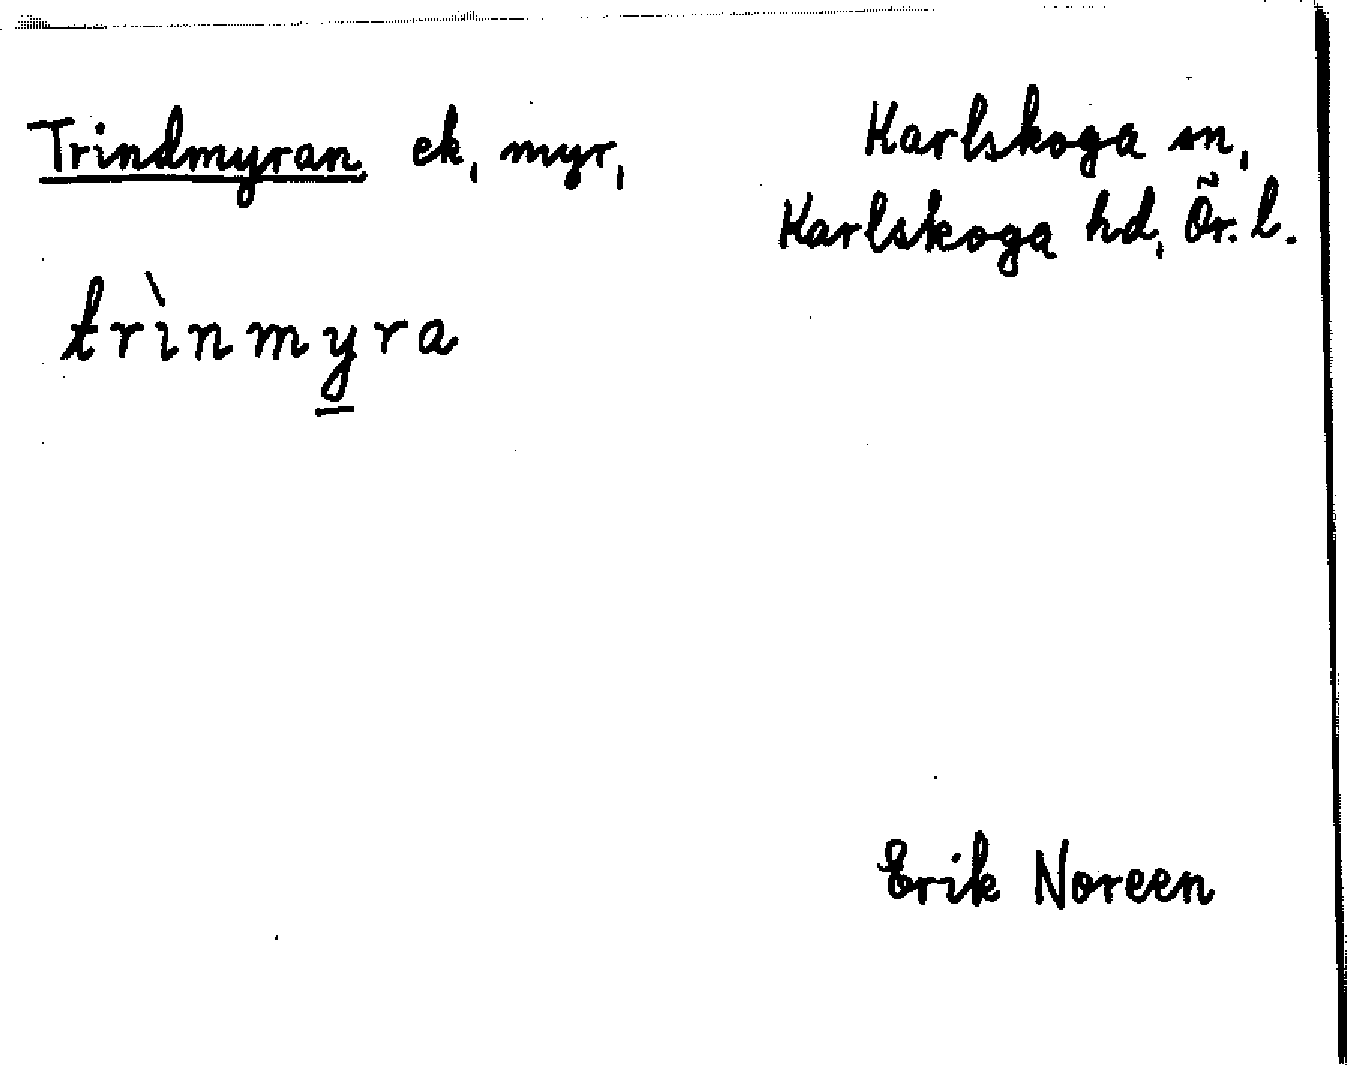 Trindmyran ek, myr,
Karlskoga sn,
Karlskoga hd, Ör. l.
trìnmy̲ra
Erik Noreen